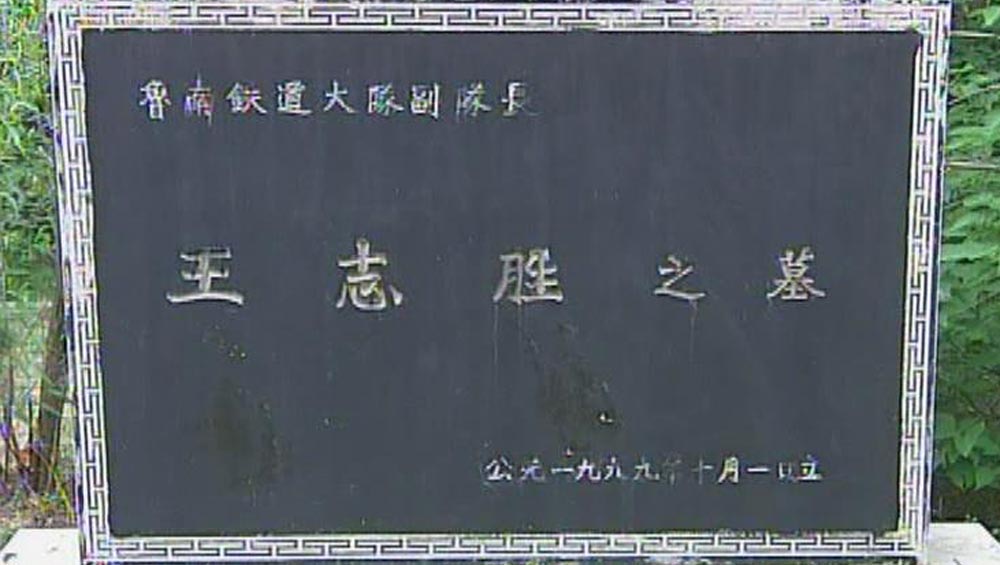 鲁南鉄道大隊副隊長
王志胜之墓
公元一九八九年十月一日立